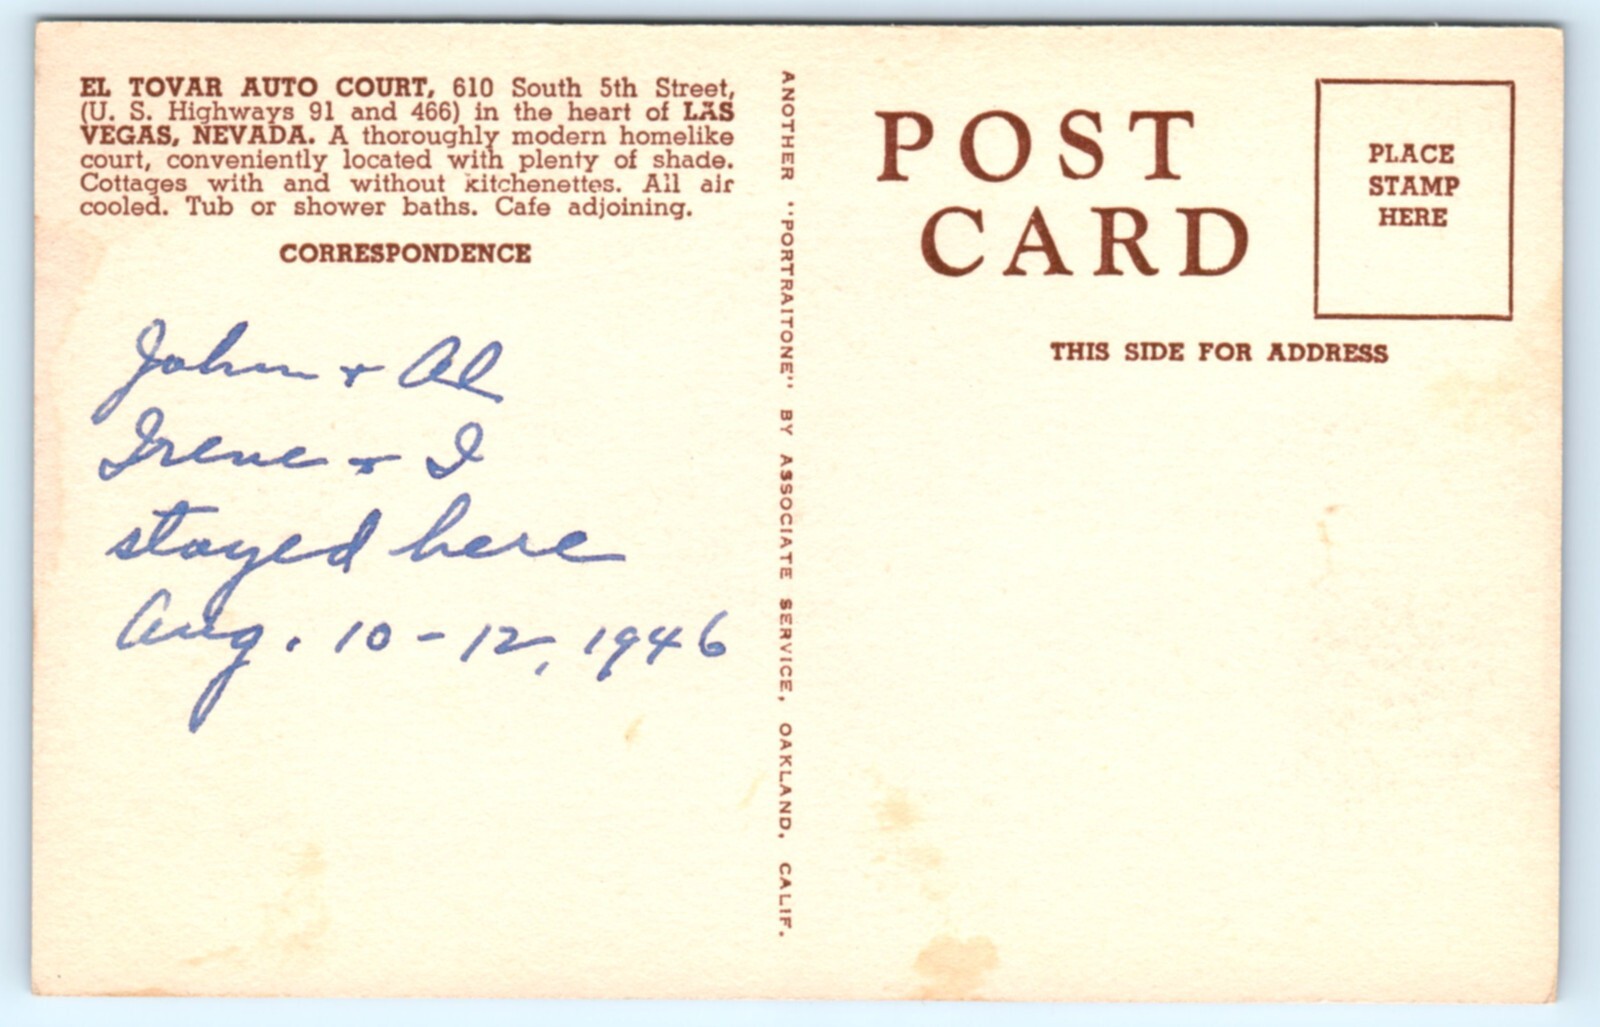 EL TOVAR AUTO COURT, 610 South 5th Street,
(U. S. Highways 91 and 466) in the heart of LAS
VEGAS, NEVADA. A thoroughly modern homelike
court, conveniently located with plenty of shade.
Cottages with and without kitchenettes. All air
cooled. Tub or shower baths. Cafe adjoining.
CORRESPONDENCE
John + Al
Irene + I
stayed here
Aug. 10-12, 1946
ANOTHER "PORTRAITONE" BY ASSOCIATE SERVICE, OAKLAND, CALIF.
POST
CARD
PLACE
STAMP
HERE
THIS SIDE FOR ADDRESS